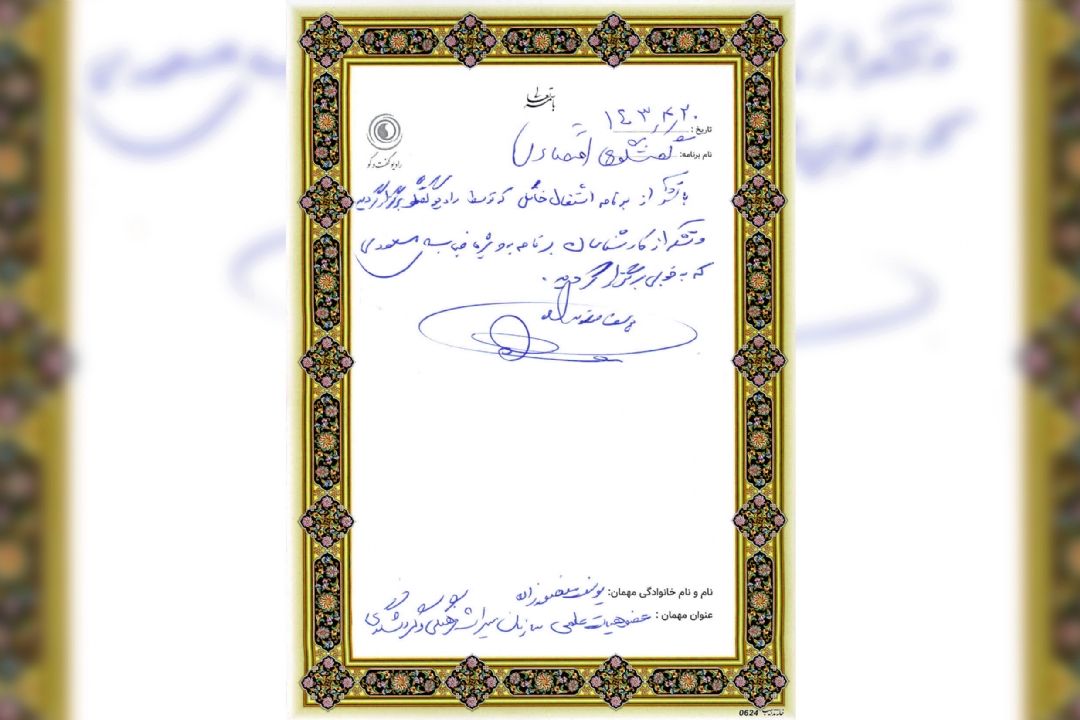 باسمه تعالی
رادیو گفت و گو
تاریخ: ۱۴۰۳,۴,۲۰
نام برنامه: گفتگوی اقتصادی
با تشکر از برنامه اشتغال خانگی که توسط رادیو گفتگو برگزار گردید
و تشکر از کارشناسان برنامه بویژه مسعودی
که به خوبی برگزار گردید.
یوسف منصورزاده
نام و نام خانوادگی مهمان: یوسف منصورزاده
عنوان مهمان: عضو هیات علمی سازمان میراث فرهنگی و گردشگری
0624